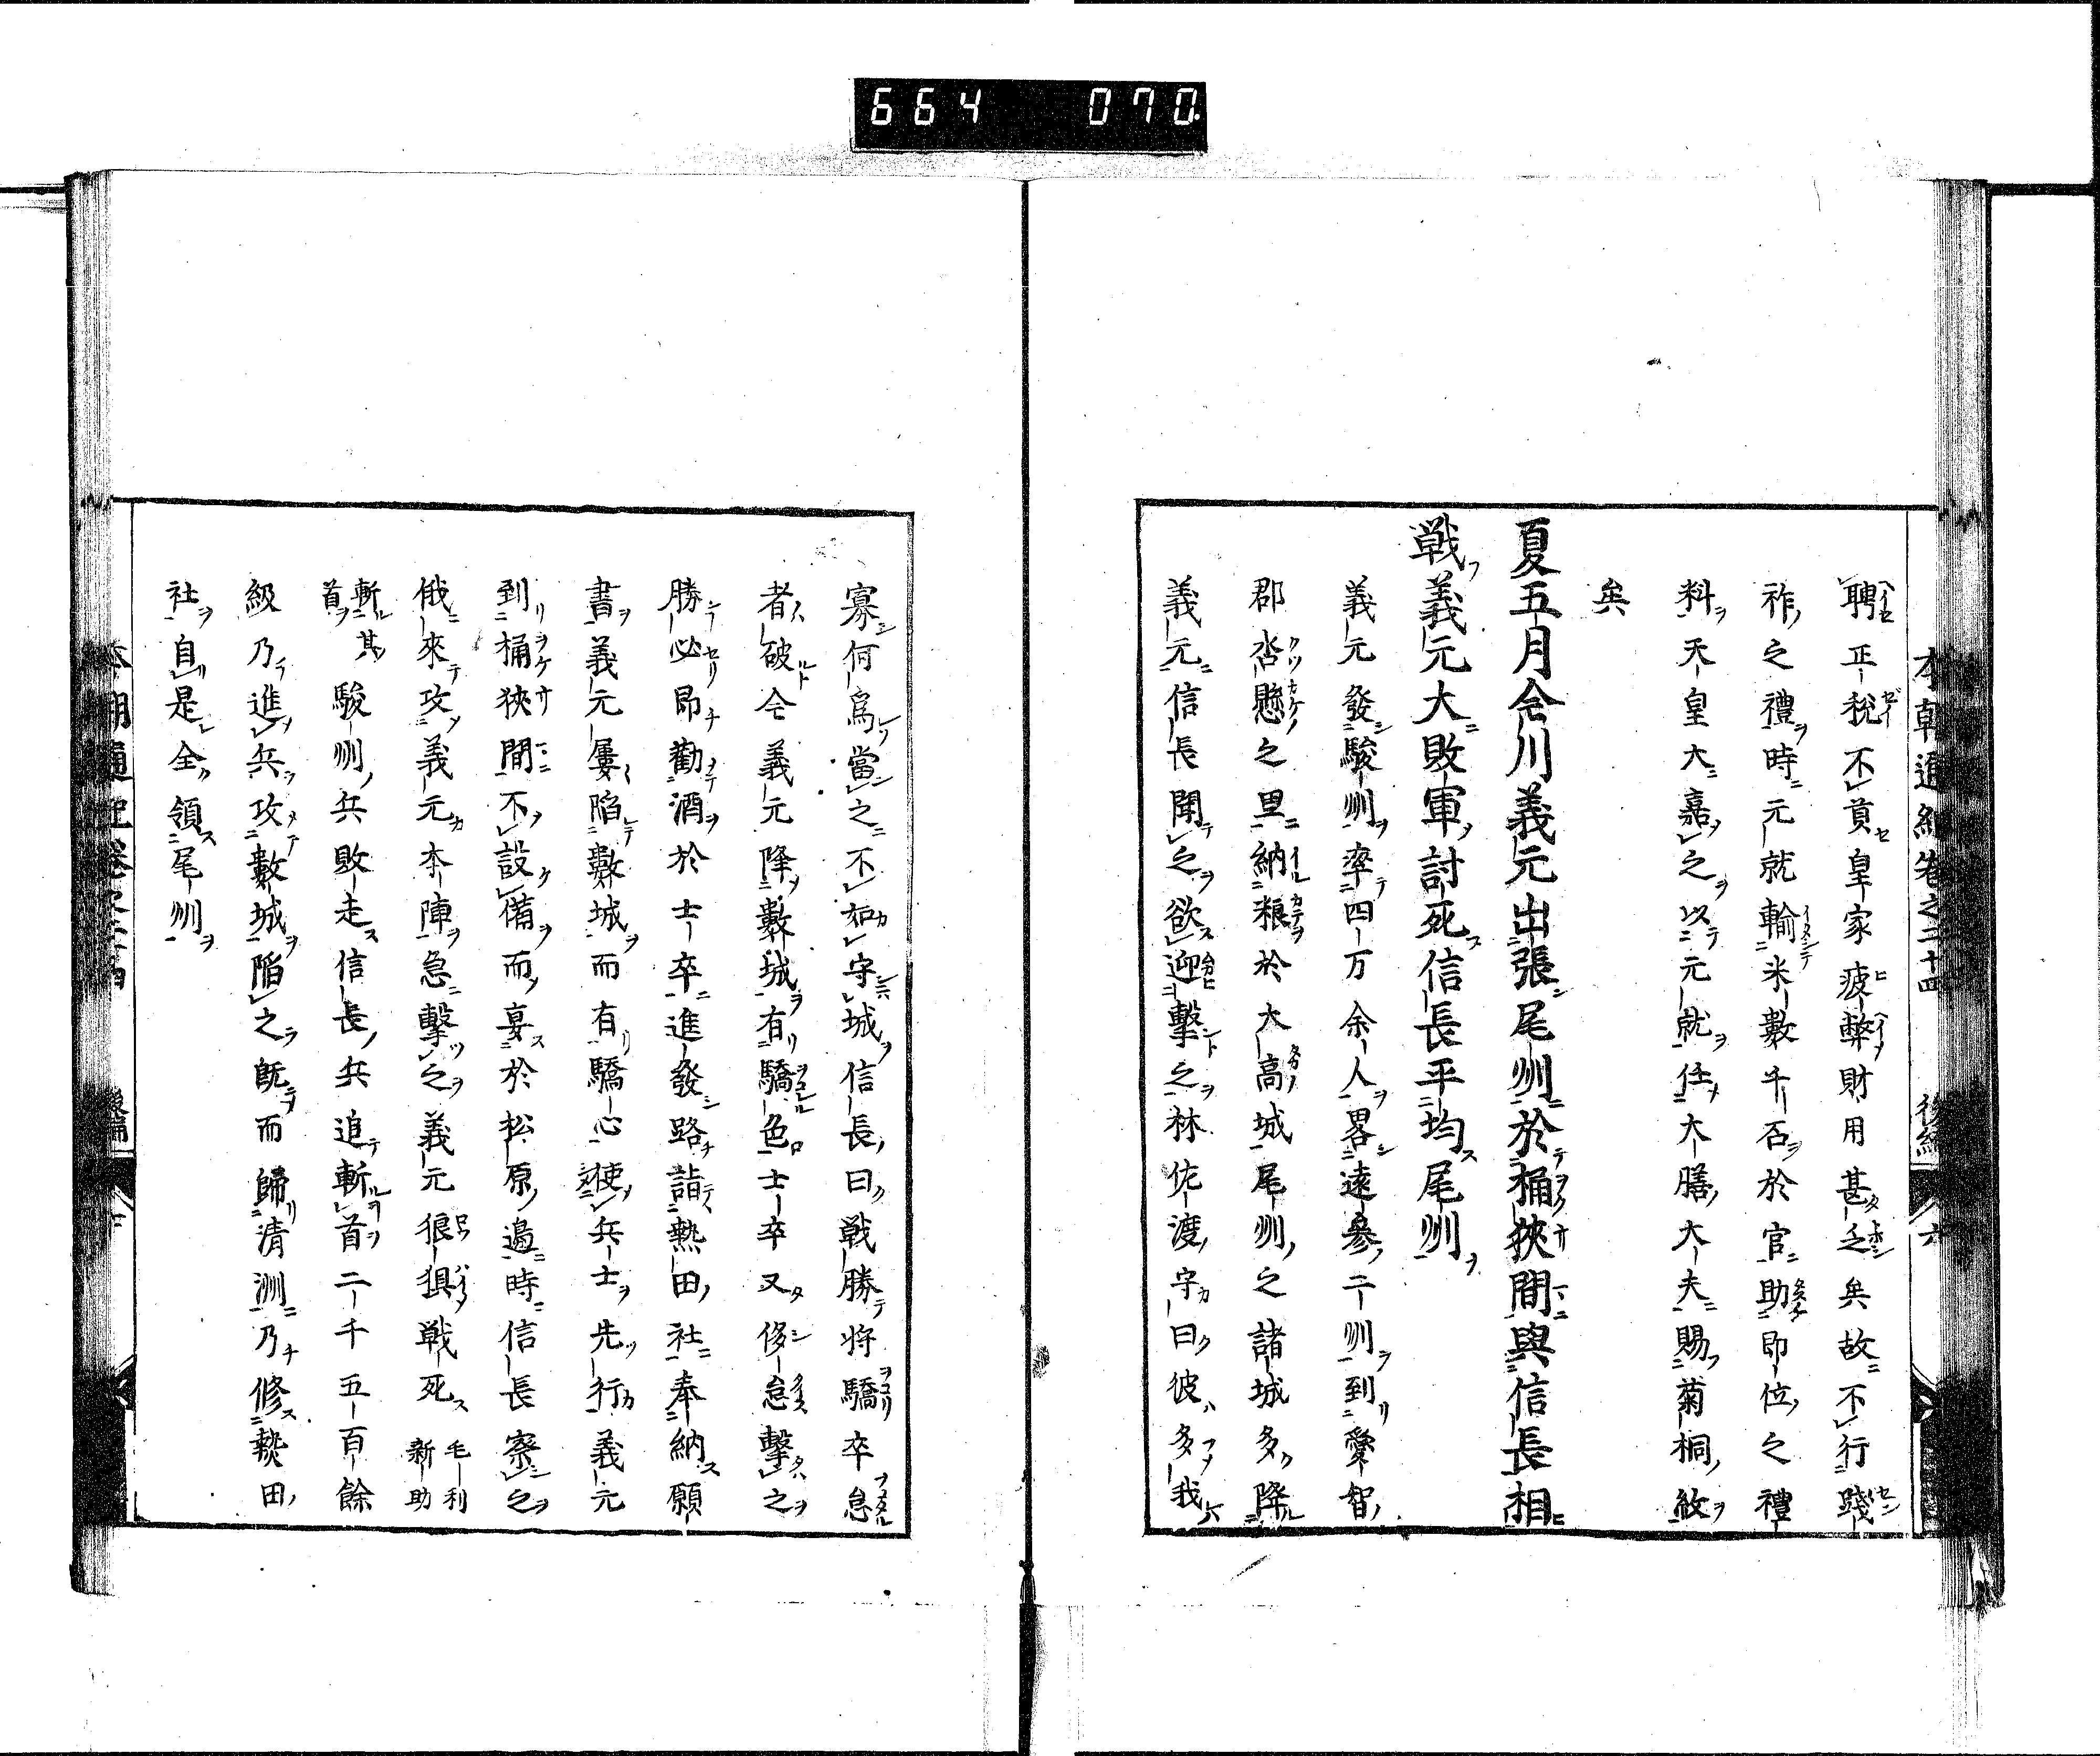 664 070
本朝通紀卷之二十四 後編 六
聘正税不貢皇家疲弊財用甚乏矣故不行踐
祚之禮時元就輸米數千石於官助即位之禮
料天皇大嘉之以元就任大膳大夫賜菊桐紋
矣
夏五月今川義元出張尾州於桶狹間與信長相
戰義元大敗軍討死信長平均尾州
義元發駿州率四万余人畧遠參二州到愛智
郡沓懸之里納粮於大高城尾州之諸城多降
義元信長聞之欲迎擊之林佐渡守曰彼多我
寡何爲當之不如守城信長曰戰勝將驕卒怠
者破今義元降數城有驕色士卒又侈怠擊之
勝必即勸酒於士卒進發路詣熱田社奉納願
書義元屢陷數城而有驕心使兵士先行義元
到桶狹間不設備而宴於松原邉時信長察之
俄來攻義元本陣急擊之義元狼狽戰死 毛利新助
斬其首 駿州兵敗走信長兵追斬首二千五百餘
級乃進兵攻數城陷之既而歸清洲乃修熱田
社自是全領尾州